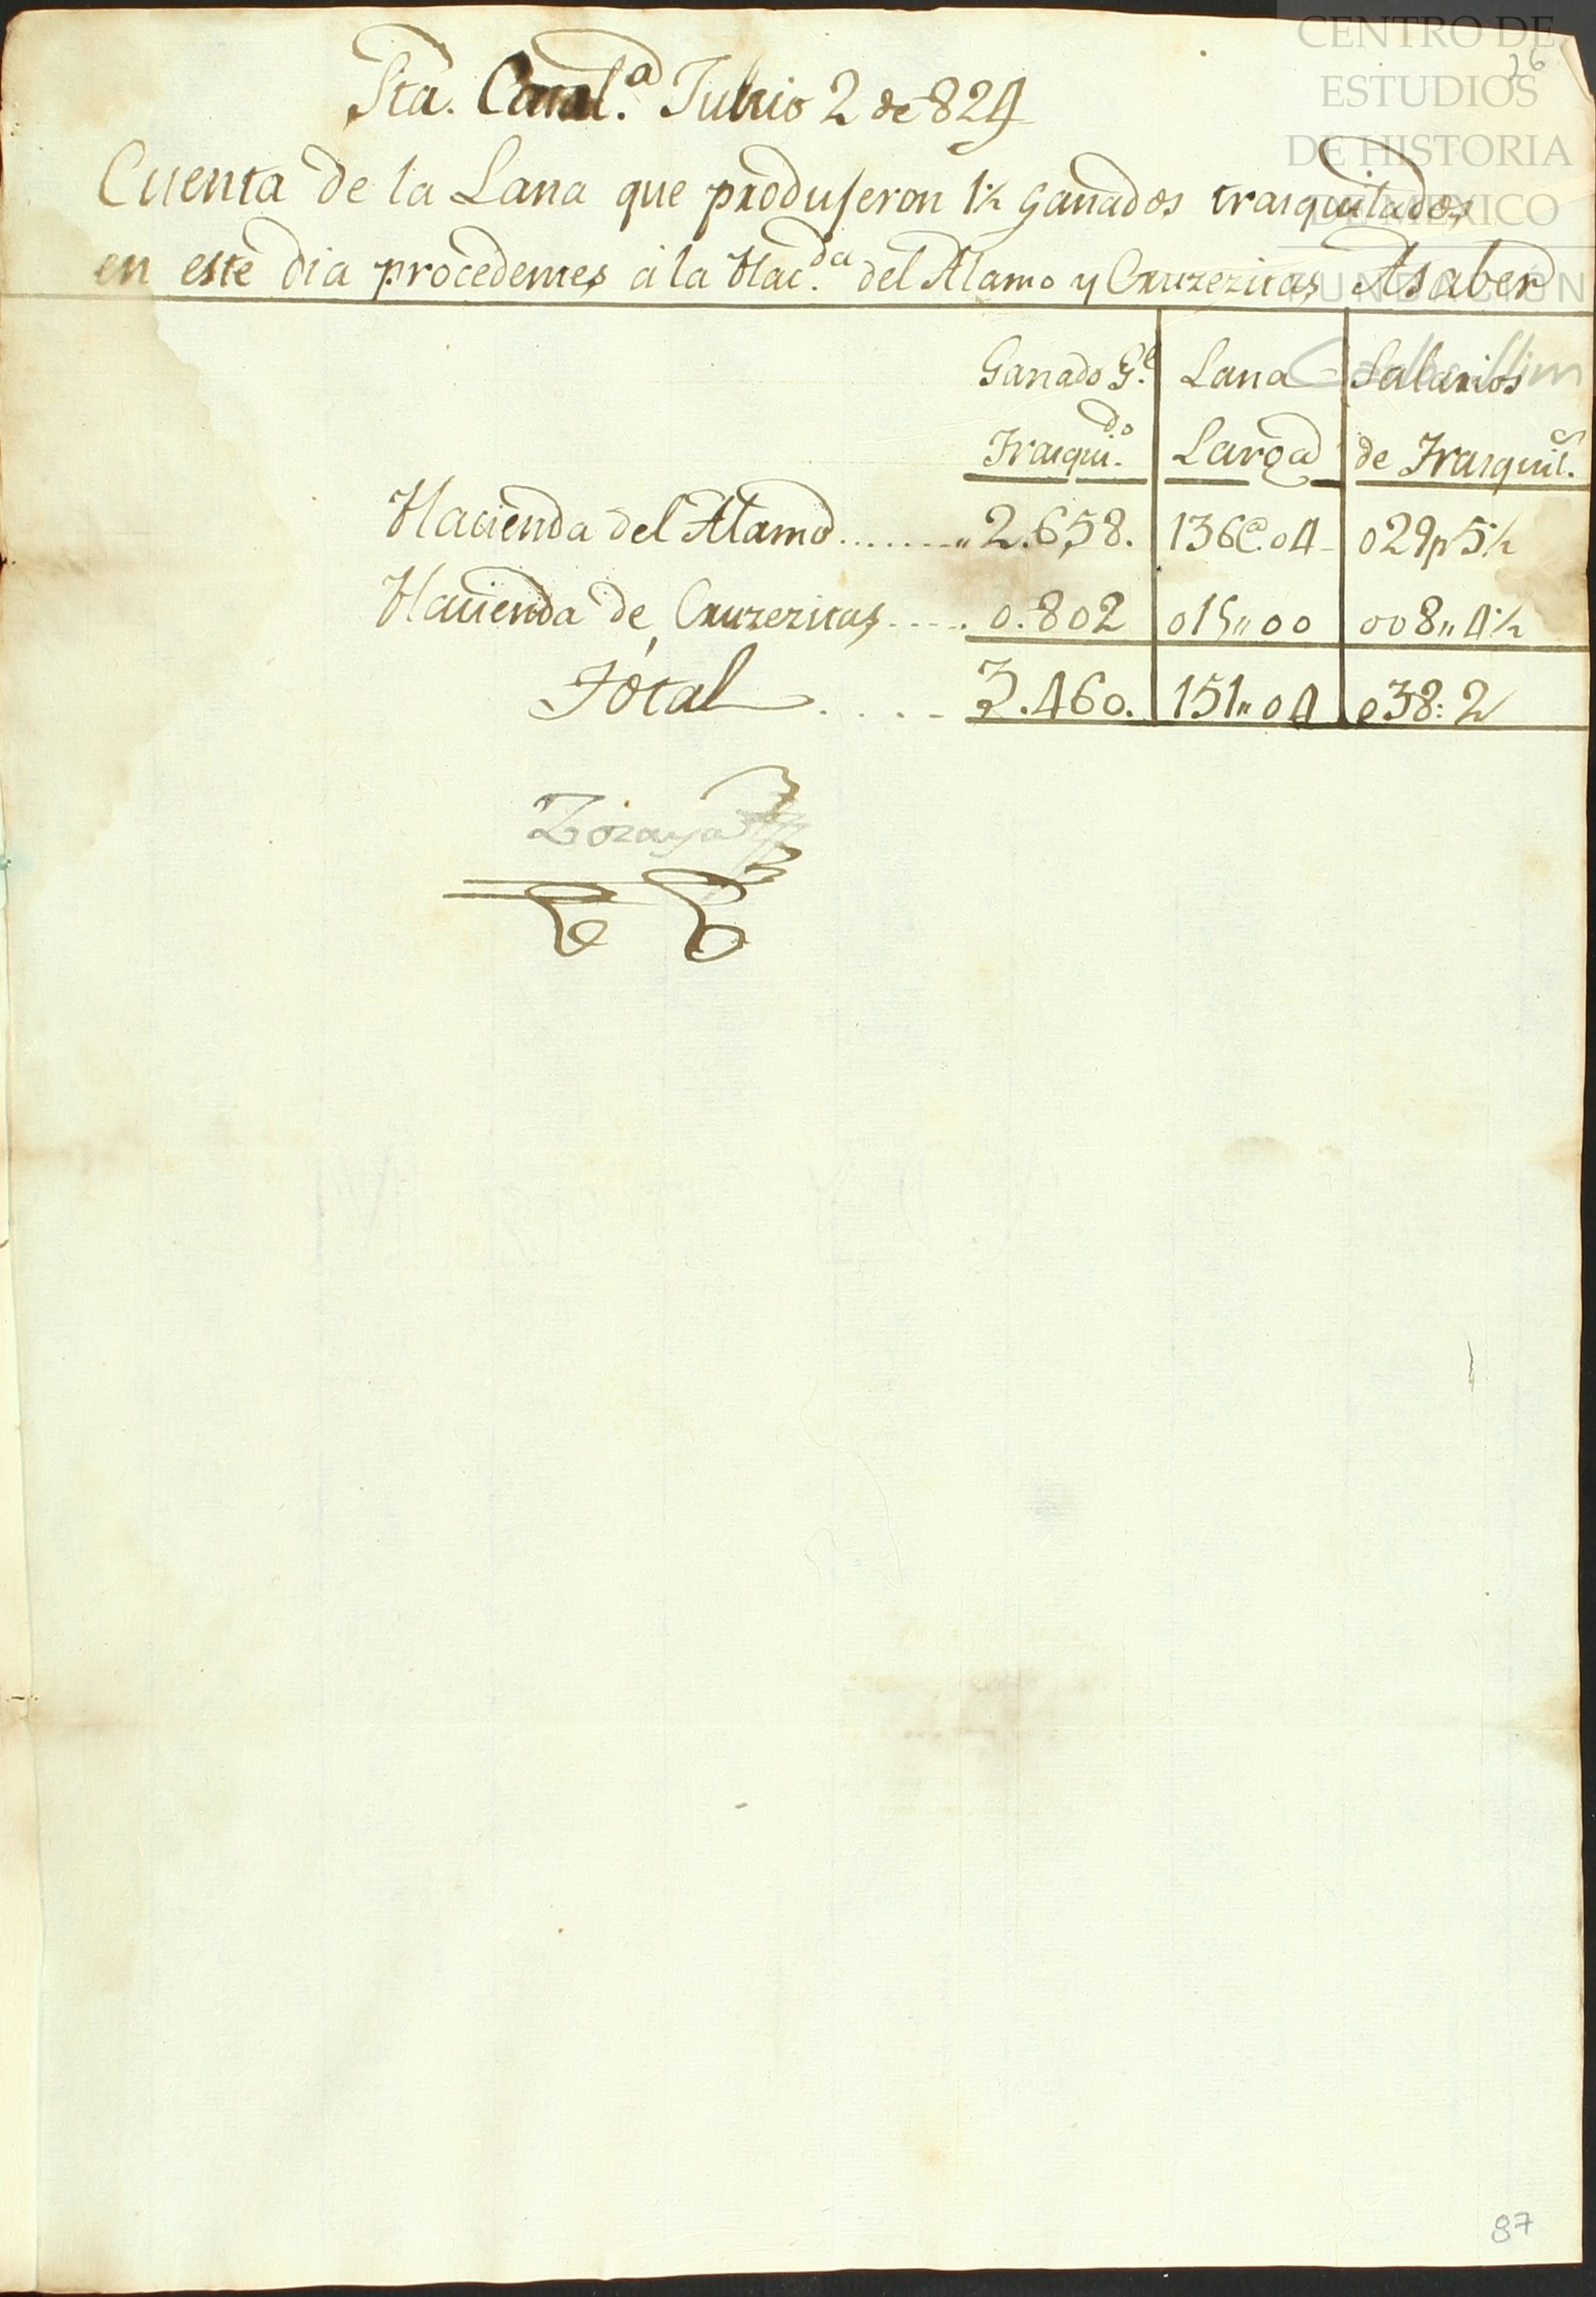 CENTRO DE
ESTUDIOS
DE HISTORIA
DE MEXICO
FUNDACION
26
Sta. Catal.ª Julio 2 de 824
Cuenta de la Lana que produjeron ganados trasquilados
en este dia procedentes á la Hac.da del Alamo y Cruzezitas Asaber
Ganado G.l Lana Salarios
Trasqui.do Larga de Trasquil.s
Hacienda del Alamo........„ 2.658. 136@.04 029p 5½
Hacienda de Cruzezitas..... 0.802 015„00 008„4½
Total .... 3.460. 151„04 038:2
Zozaya
87